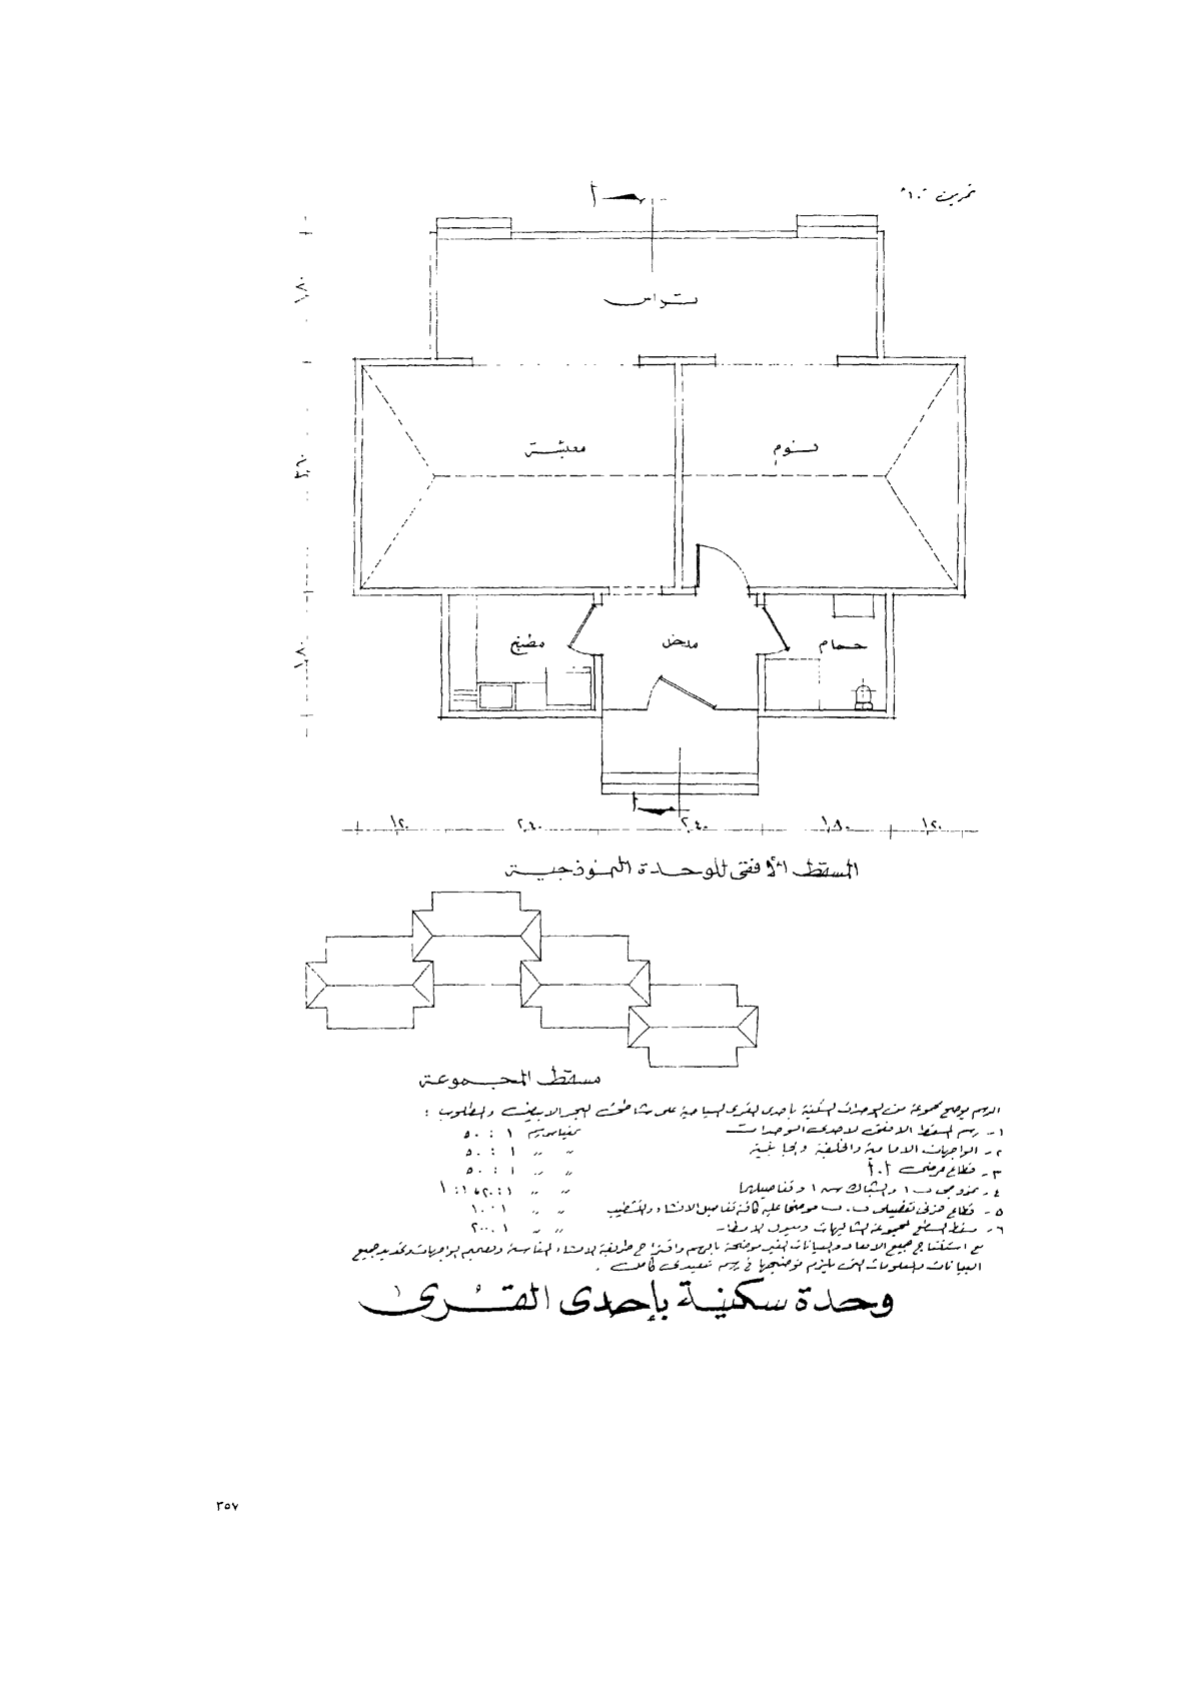 تمرين
أ
تراس
١,٨٠
معيشة
نوم
٣,٦٠
مطبخ
مدخل
حمام
١,٨٠
أ
١,٢٠ ٢,٤٠ ٢,٤٠ ١,٨٠ ١,٢٠
المسقط الأفقى للوحدة النموذجية
مسقط المجموعة
الرسم يوضح مجموعة من الوحدات السكنية بإحدى القرى السياحية على شاطئ البحر الابيض والمطلوب :
١- رسم المسقط الافقى لاحدى الوحدات بمقياس رسم ١ : ٥٠
٢- الواجهات الامامية والخلفية والجانبية ,, ,, ١ : ٥٠
٣- قطاع عرضى أ.أ ,, ,, ١ : ٥٠
٤- نموذجى ب١ والشباك ش١ وتفاصيلهما ,, ,,
٥- قطاع جزئى تفصيلى ب.ب موضحا عليه كافة تفاصيل الانشاء والتشطيب ,, ,, ١ : ١٠
٦- مسقط السطح لمجموعة الشاليهات وميول الامطار ,, ,, ١ : ٢٠٠
مع استنتاج جميع الابعاد والبيانات الغير موضحة بالرسم واقتراح طريقة الانشاء المناسبة وتصميم الواجهات وتحديد جميع
البيانات والمعلومات التى يلزم توضيحها فى رسم تنفيذى كامل .
وحدة سكنية بإحدى القرى
٣٥٧